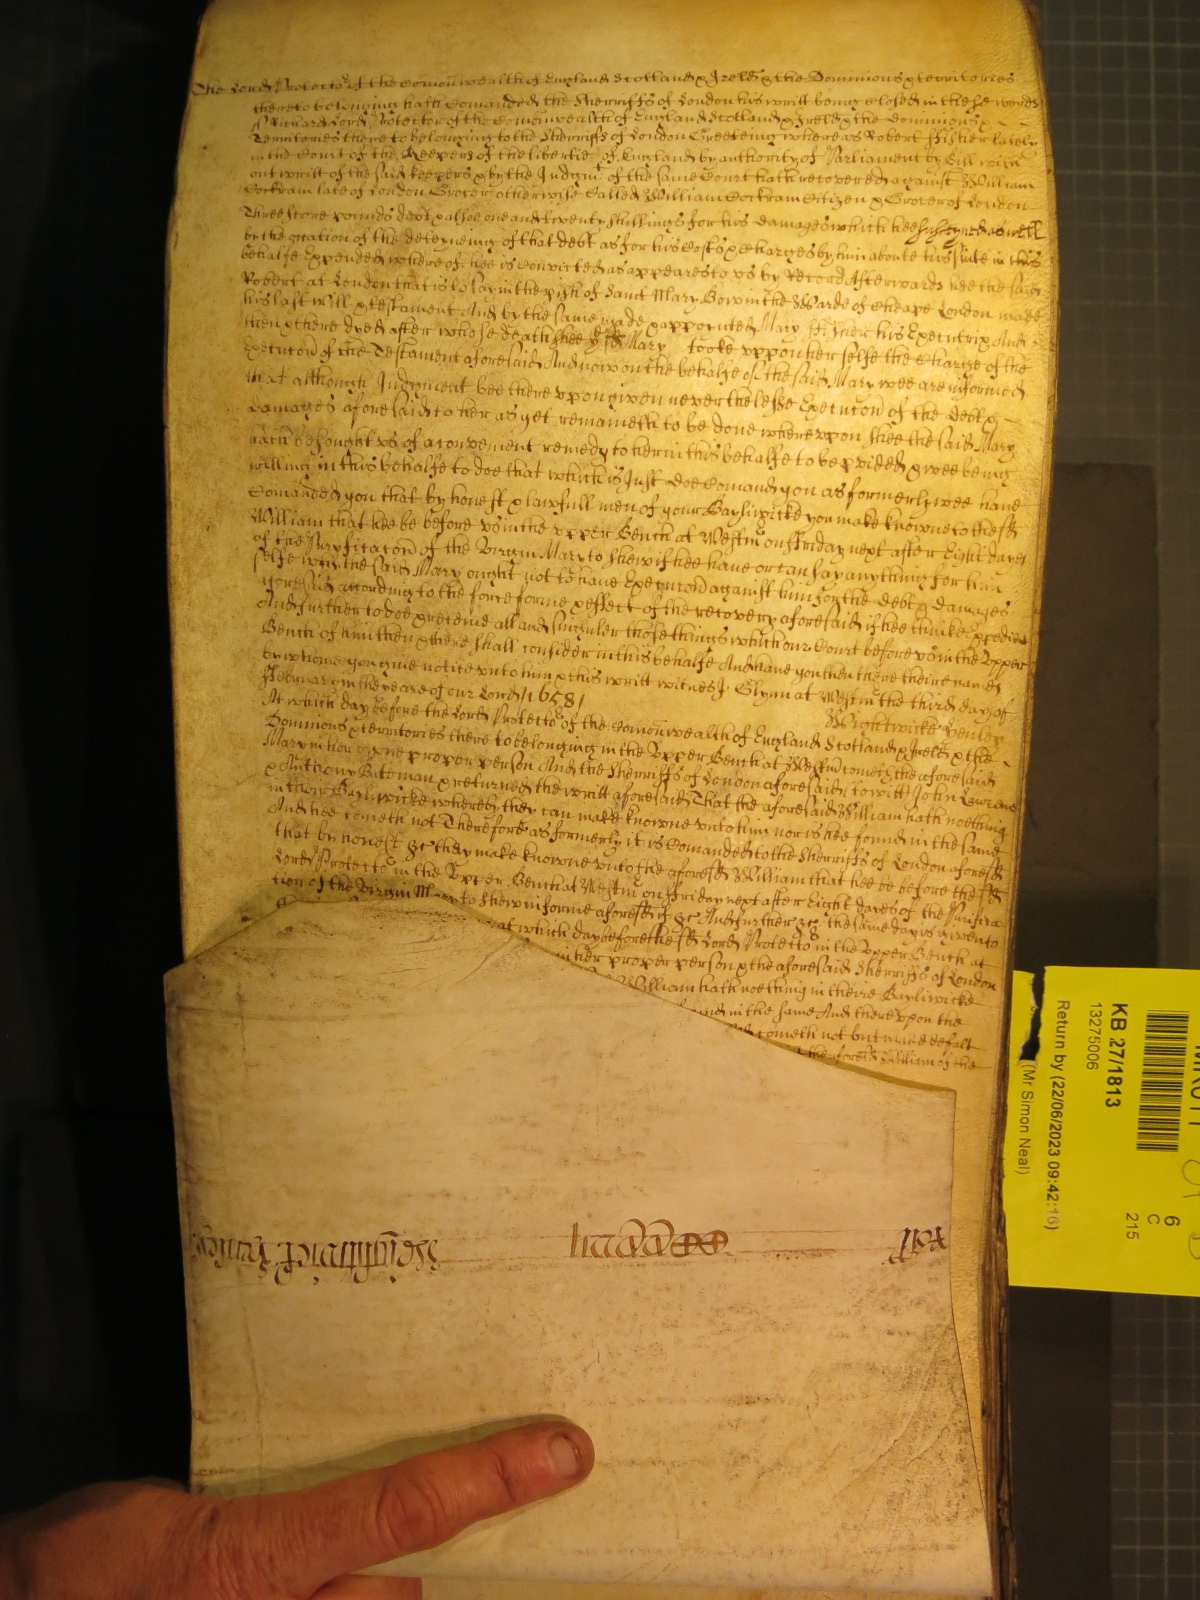 The Lord Protector of the Comonwealth of England Scotland & Ireld & the Dominions & territories
thereto belonging hath Comanded the Sherriffs of London his writt being closed in these words
Richard Lord Protector of the Comonwealth of England Scotland & Ireld & the dominions &
Territories thereto belonging to the Sherriffs of London Greeteing whereas Robert Fisher lately
in the Court of the Keepers of the libertie of England by authority of Parliament by Bill with
out writt of the said keepers & by the Judgmt of the same Court hath recovered against William
Cockram late of London Grocer otherwise Called William Cockram Citizen & Grocer of London
Three score pounds debt & alsoe one and twenty shillings for his damages which hee susteyned aswell
by the occation of the deteyneing of that debt as for his Costs & charges by him about his suite in this
behalfe Expended whereof hee is Convicted as appeares to us by Record Afterwards hee the said
Robert at London that is to say in the pish of Saint Mary Bow in the Warde of Cheape London made
his last Will & testament And by the same made & appointed Mary Fisher his Executrix And
then & there dyed after whose death shee ye sd Mary tooke uppon her selfe the Charge of the
Execucon of the Testament aforesaid And now on the behalfe of the said Mary wee are informed
that although Judgment bee thereuppon given neverthelesse Execucon of the debt &
damages aforesaid to her as yet remaineth to be done whereuppon shee the said Mary
hath besought us of a convenient remedy to her in this behalfe to be pvided & wee being
willing in this behalfe to doe that which is Just doe Comand you as formerly wee have
Comanded you that by honest & lawfull men of your Bayliwicke you make knowne to the sd
William that hee be before us in the upper Bench at Westmr on Friday next after Eight dayes
of the Purificacon of the Virgin Mary to shew if hee have or can say anything for him
selfe why the said Mary ought not to have Execucon against him for the debt & damages
aforesaid according to the force forme & effect of the recovery aforesaid if hee thinke Expedient
And further to doe & receive all and singuler those things which our Court before us in the Upper
Bench of him then & there shall consider in this behalfe And have you then there their names
by whome you give notice unto him & this writt witnes J. Glynn at Westmr the third day of
February in the yeare of our Lord 1658/
Wightwicke Henley
At which day before the Lord Protector of the Comonwealth of England Scotland & Ireld & the
Dominions & territories thereto belonging in the Upper Bench at Westmr cometh the aforesaid
Mary in her owne proper person And the Sherriffs of London aforesaid (to witt) John
& Anthony Bateman & returned the writt aforesaid That the aforesaid William hath noething
in their Bayliwicke whereby they can make knowne unto him nor is hee found in the same
And hee cometh not Therefore as formerly it is Comanded to the Sherriffs of London aforesd
that by honest &c they make knowne unto the aforesd William that hee be before the sd
Lord Protector in the Upper Bench at Westmr on Friday next after Eight dayes of the Purifica
tion of the Virgin Mary to shew in forme aforesd if &c And further &c the same day is given to
at which day before the sd Lord Protector in the Upper Bench at
in her proper person & the aforesaid Sherriffs of London
William hath noething in theire Bayliwicke
found in the same And thereupon the
cometh not but made defalt
the aforesd William of the
KB 27/1813
13275006
Return by (22/06/2023 09:42:16)
(Mr Simon Neal)
6
C
215